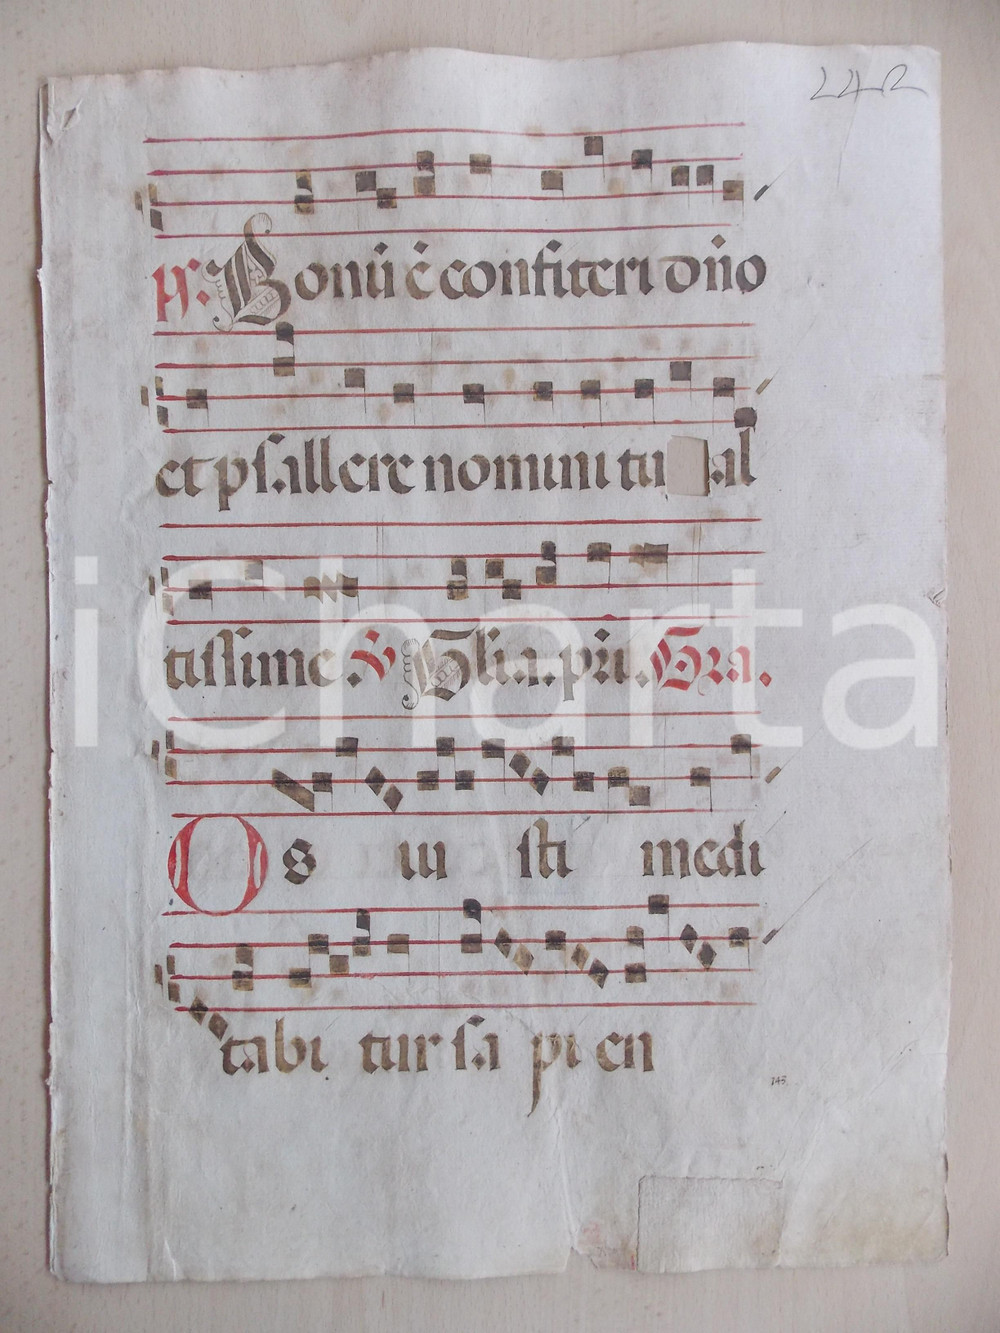 242
ps. Bonũ ẽ confiteri dño
et psallere nomini tu al
tissime. ℣ Glia. pri. Gra.
Os iu sti medi
tabi tur sa pi en
143.
iCharta